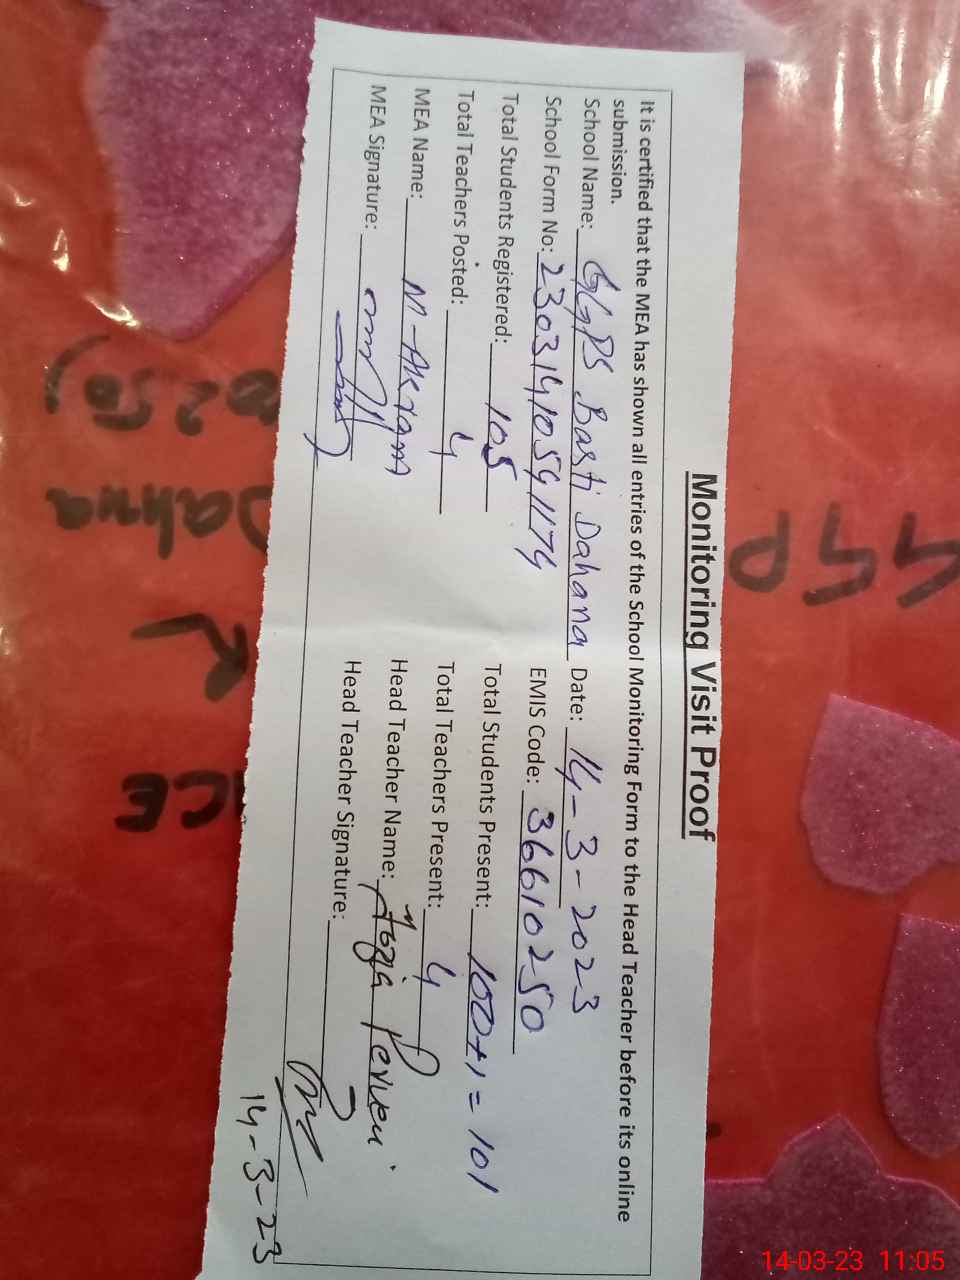 Monitoring Visit Proof
It is certified that the MEA has shown all entries of the School Monitoring Form to the Head Teacher before its online
submission.
School Name: GGPS Basti Dahana Date: 14-3-2023
School Form No: 23031410541174 EMIS Code: 36610250
Total Students Registered: 105 Total Students Present: 100+1=101
Total Teachers Posted: 4 Total Teachers Present: 4
MEA Name: M-Akram Head Teacher Name: Perveen
MEA Signature: Head Teacher Signature:
14-3-23
GGP
Dahna
0250)
14-03-23 11:05